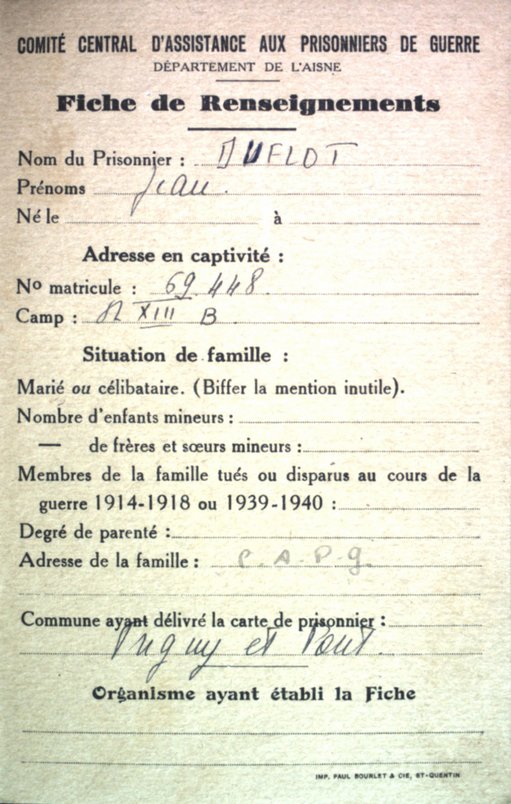 COMITÉ CENTRAL D'ASSISTANCE AUX PRISONNIERS DE GUERRE
DÉPARTEMENT DE L'AISNE
Fiche de Renseignements
Nom du Prisonnier : DUFLOT
Prénoms Jean.
Né le à
Adresse en captivité :
No matricule : 69.448.
Camp : XIII B
Situation de famille :
Marié ou célibataire. (Biffer la mention inutile).
Nombre d'enfants mineurs :
— de frères et sœurs mineurs :
Membres de la famille tués ou disparus au cours de la
guerre 1914-1918 ou 1939-1940 :
Degré de parenté :
Adresse de la famille : C.A.P.g.
Commune ayant délivré la carte de prisonnier :
et Pont.
Organisme ayant établi la Fiche
IMP. PAUL BOURLET & CIE, ST-QUENTIN